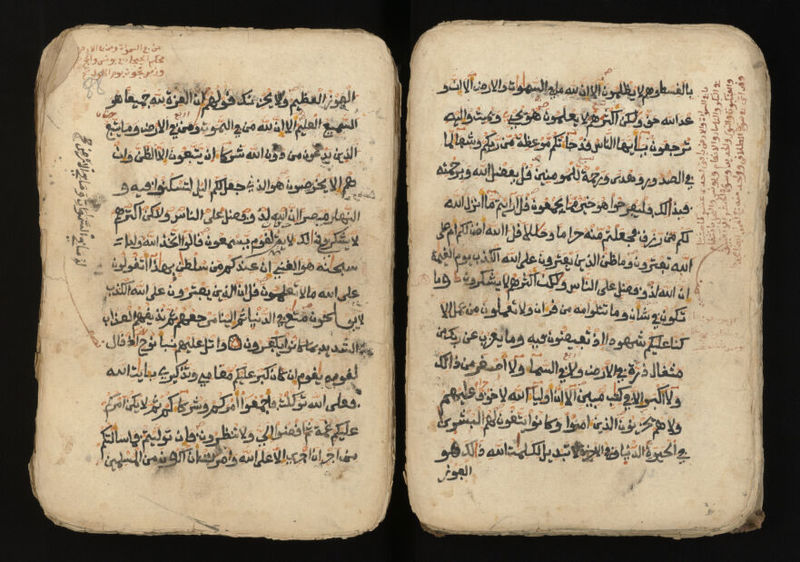 بالقسط وهم لا يظلمون الا ان لله ما في السموت والارض الا ان و
عد الله حق ولكن اكثرهم لا يعلمون هو يحي ويميت واليه
ترجعون يايها الناس قد جاتكم موعظة من ربكم وشفا لما
في الصدور وهدى ورحمة للمومنين قل بفضل الله وبرحمته
فبذالك فليفرحوا هو خير مما يجمعون قل ارايتم ما انزل الله
لكم من رزق فجعلتم منه حراما وحللا قل الله اذن لكم ام على
الله تفترون وما ظن الذين يفترون على الله الكذب يوم القيمة
ان الله لذو فضل على الناس ولكن اكثرهم لا يشكرون وما
تكون في شان وما تتلوا منه من قران ولا تعملون من عمل الا
كنا عليكم شهودا اذ تفيضون فيه وما يعزب عن ربك من
مثقال ذرة في الارض ولا في السما ولا اصغر من ذالك
ولا اكبر الا في كتب مبين الا ان اوليا الله لا خوف عليهم
ولا هم يحزنون الذين امنوا وكانوا يتقون لهم البشرى
في الحيوة الدنيا وفي الاخرة لا تبديل لكلمت الله ذالك هو
الفوز
الفوز العظيم ولا يحزنك قولهم ان العزة لله جميعا هو
السميع العليم الا ان لله من في السموت ومن في الارض وما يتبع
الذين يدعون من دون الله شركا ان يتبعون الا الظن وان
هم الا يخرصون هو الذي جعل لكم اليل لتسكنوا فيه و
النهار مبصرا ان الله لذو فضل على الناس ولكن اكثرهم
لا يشكرون ان في ذالك لايت لقوم يسمعون قالوا اتخذ الله ولدا
سبحنه هو الغني ان عندكم من سلطن بهذا اتقولون
على الله ما لا تعلمون قل ان الذين يفترون على الله الكذب
لا يفلحون متع في الدنيا ثم الينا مرجعهم ثم نذيقهم العذاب
الشديد بما كانوا يكفرون واتل عليهم نبا نوح اذ قال
لقومه يقوم ان كان كبر عليكم مقامي وتذكيري بايت الله
فعلى الله توكلت فاجمعوا امركم وشركاكم ثم لا يكن امركم
عليكم غمة ثم اقضوا الي ولا تنظرون فان توليتم فما سالتكم
من اجر ان اجري الا على الله وامرت ان اكون من المسلمين